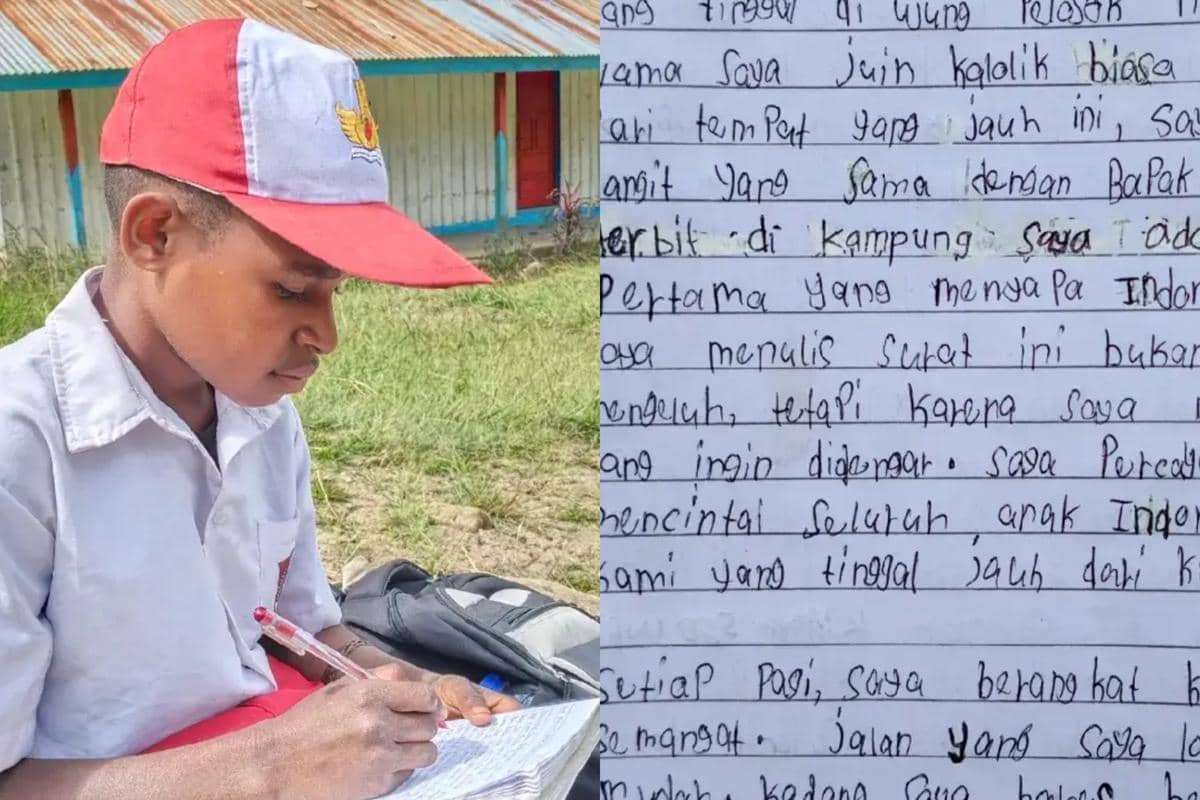 ang tinggal di ujung Pelosok
nama Saya juin kalolik biasa
ari temPat yang jauh ini, Sa
angit yang Sama dengan BaPak
erbit di kampung Saya ada
Pertama yang menyaPa Indon
aya menulis Surat ini bukan
engeluh, tetaPi karena Saya
ang ingin didengar. Saya Percay
encintai Seluruh anak Indon
kami yang tinggal jauh dari k
SetiaP Pagi, Saya berangkat
Semangat. jalan yang Saya la
mudah. kadang Saya